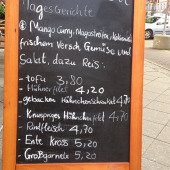 Tagesgerichte
Mango Curry, Magostreifen,
frischem Versch. Gemüse und
Salat, dazu Reis:
- tofu 3,80
- Hühnerfilet 4,20
- gebacken Hühnchenschenkel 4,70
- Knuspriges Hühnchen 4,70
- Rindfleisch 4,70
- Ente Kross 5,20
- Großgarnele 5,20